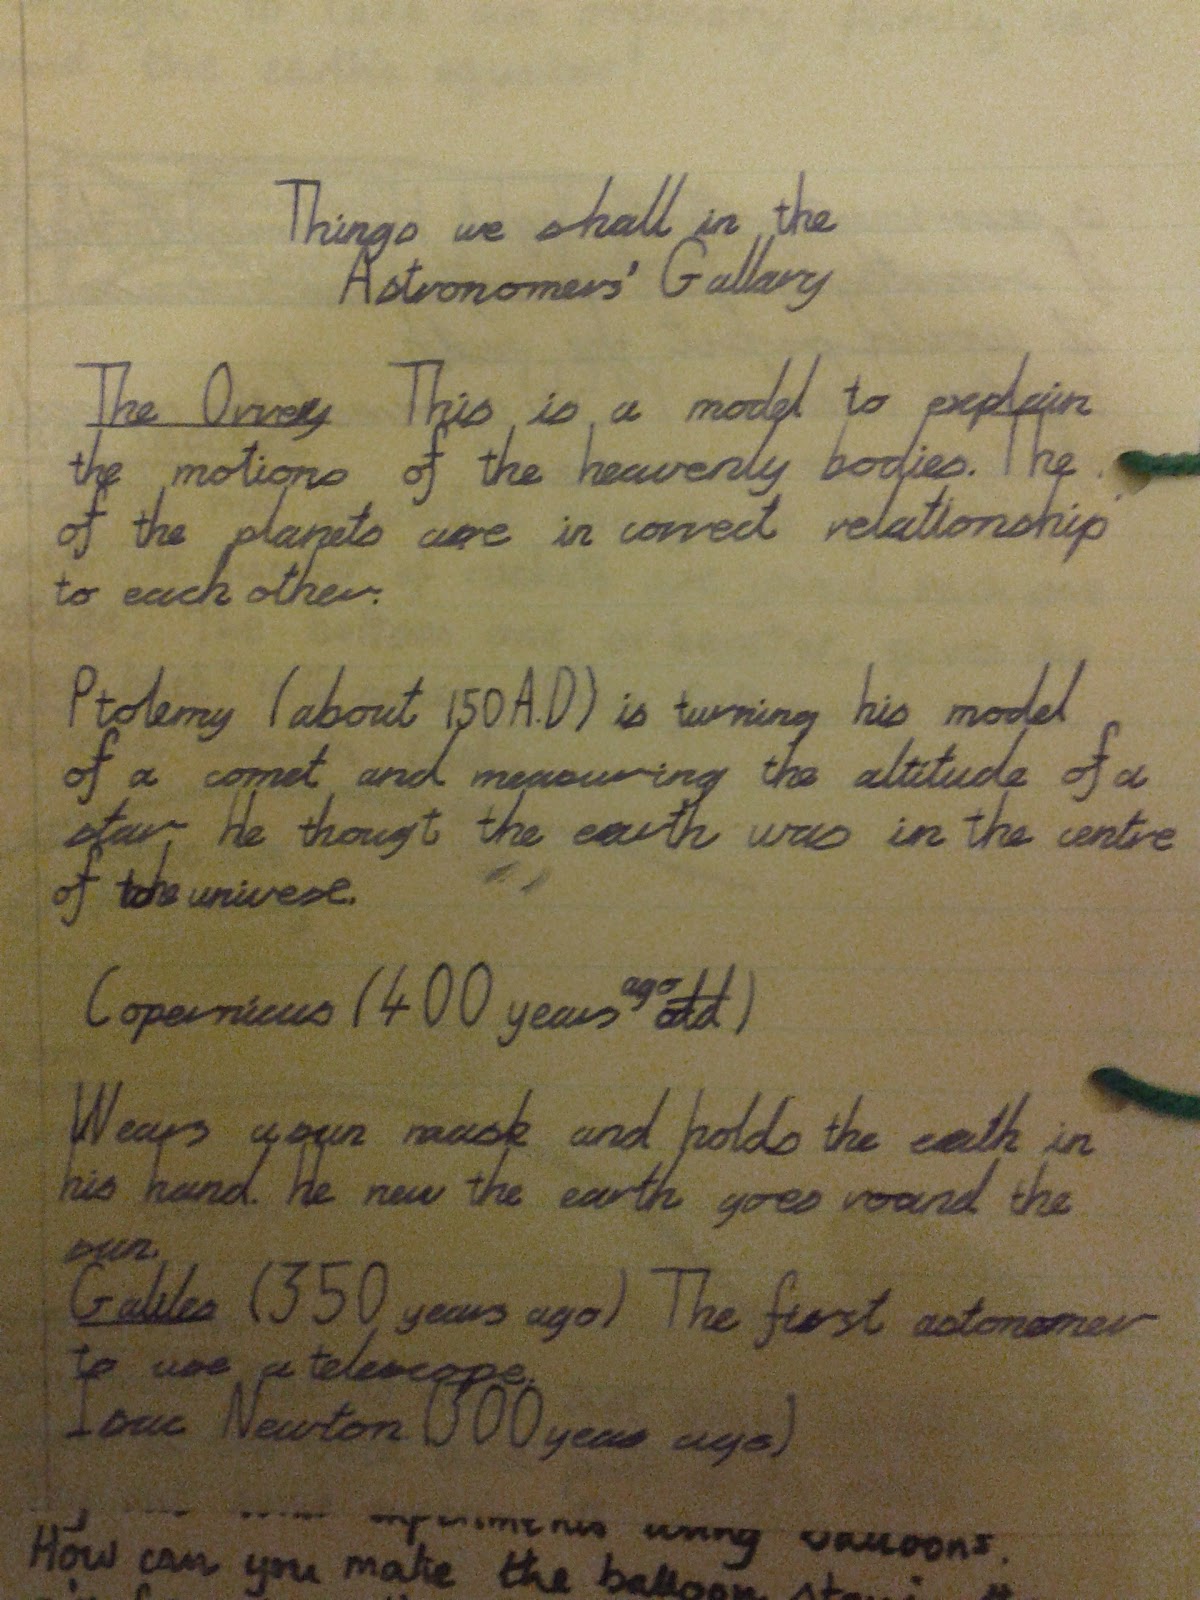 Things we shall in the
Astronomers' Gallary
The Orrery This is a model to explain
the motions of the heavenly bodies. The
of the planets are in correct relationship
to each other.
Ptolemy (about 150 A.D) is turning his model
of a comet and measuring the altitude of a
star. He thougt the earth was in the centre
of the univese.
Copernicus (400 years ago old)
Wears a sun mask and holds the earth in
his hand. he new the earth goes round the
sun.
Galileo (350 years ago) The first astonomer
to use a telescope.
Isac Newton (300 years ago)
experiments using balloons.
How can you make the balloon stay in